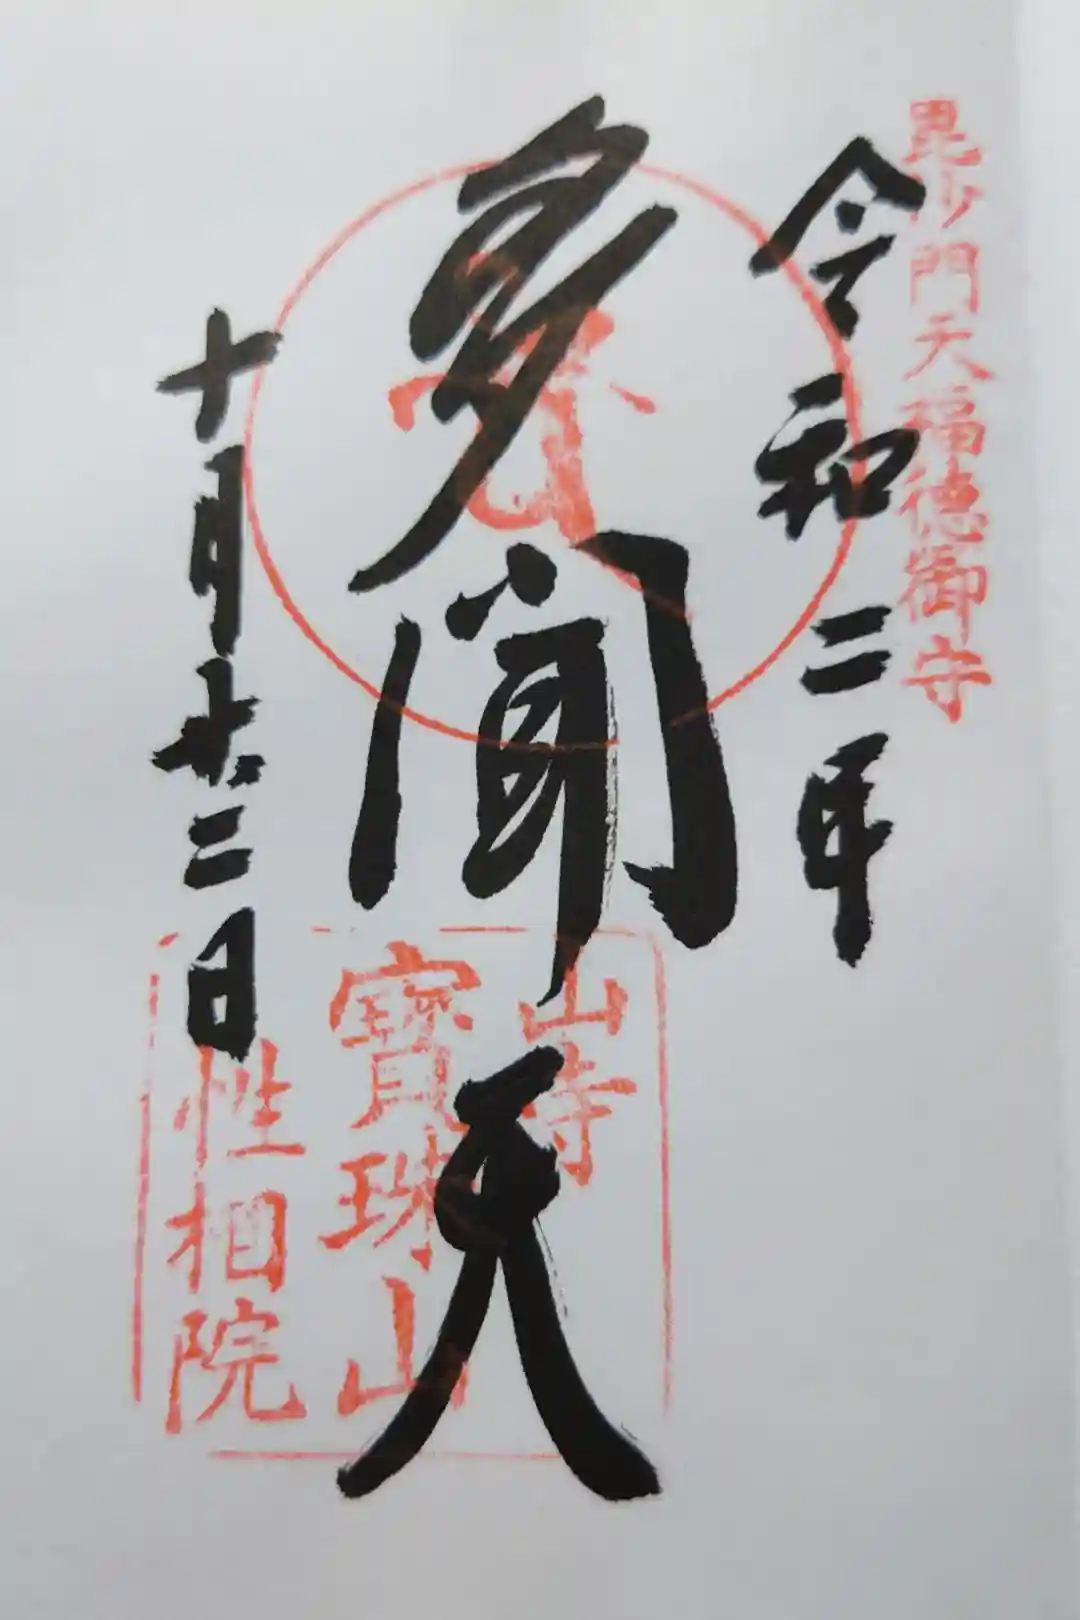 毘沙門天福徳御守
令和二年
多聞天
十月十二日
山寺
寳珠山
性相院